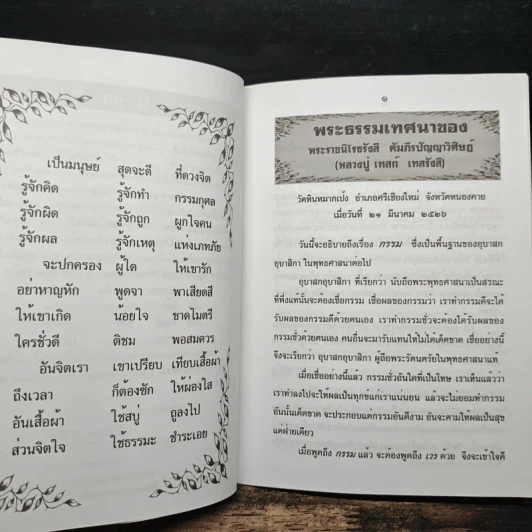 เป็นมนุษย์ สุดจะดี ที่ดวงจิต
รู้จักคิด รู้จักทำ กรรมกุศล
รู้จักผิด รู้จักถูก ผูกใจคน
รู้จักผล รู้จักเหตุ แห่งเภทภัย
จะปกครอง ผู้ใด ให้เขารัก
อย่าหาญหัก พูดจา พาเสียดสี
ให้เขาเกิด น้อยใจ ขาดไมตรี
ใครชั่วดี ติชม พอสมควร
อันจิตเรา เขาเปรียบ เทียบเสื้อผ้า
ถึงเวลา ก็ต้องซัก ให้ผ่องใส
อันเสื้อผ้า ใช้สบู่ ถูลงไป
ส่วนจิตใจ ใช้ธรรมะ ชำระเอย
๑
พระธรรมเทศนาของ
พระราชนิโรธรังสี คัมภีรปัญญาวิศิษฎ์
(หลวงปู่ เทสก์ เทสรังสี)
วัดหินหมากเป้ง อำเภอศรีเชียงใหม่ จังหวัดหนองคาย
เมื่อวันที่ ๒๑ มีนาคม ๒๕๒๖
วันนี้จะอธิบายถึงเรื่อง กรรม ซึ่งเป็นพื้นฐานของอุบาสก
อุบาสิกา ในพุทธศาสนาต่อไป
อุบาสกอุบาสิกา ที่เรียกว่า นับถือพระพุทธศาสนาเป็นสรณะ
ที่พึ่งแท้นั้นจะต้องเชื่อกรรม เชื่อผลของกรรมว่า เราทำกรรมดีจะได้
รับผลของกรรมดีด้วยตนเอง เราทำกรรมชั่วจะต้องได้รับผลของ
กรรมชั่วด้วยตนเอง คนอื่นจะมารับแทนให้ไม่ได้เด็ดขาด เชื่ออย่างนี้
จึงจะเรียกว่า อุบาสกอุบาสิกา ผู้ถือพระรัตนตรัยในพุทธศาสนาแท้
เมื่อเชื่ออย่างนี้แล้ว กรรมชั่วอันใดที่เป็นโทษ เราเห็นแล้วว่า
เราทำลงไปจะให้ผลเป็นทุกข์แก่เราแน่นอน แล้วจะไม่ยอมทำกรรม
อันนั้นเด็ดขาด จะประกอบแต่กรรมอันดีงาม อันจะตามให้ผลเป็นสุข
แต่ฝ่ายเดียว
เมื่อพูดถึง กรรม แล้ว จะต้องพูดถึง เวร ด้วย จึงจะเข้าใจดี